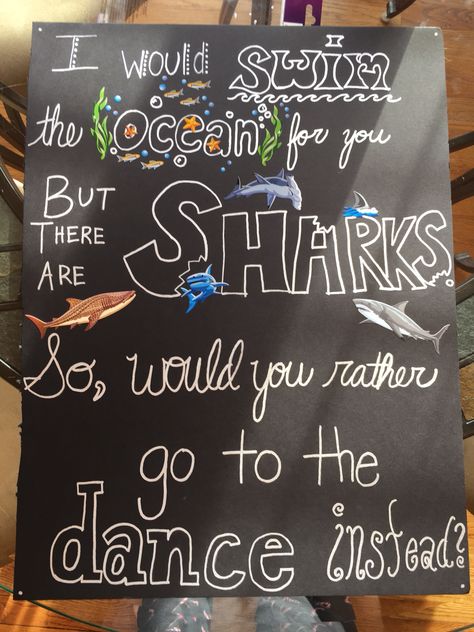 I would swim
the Ocean for you
BUT THERE ARE SHARKS.
So, would you rather
go to the
dance instead?